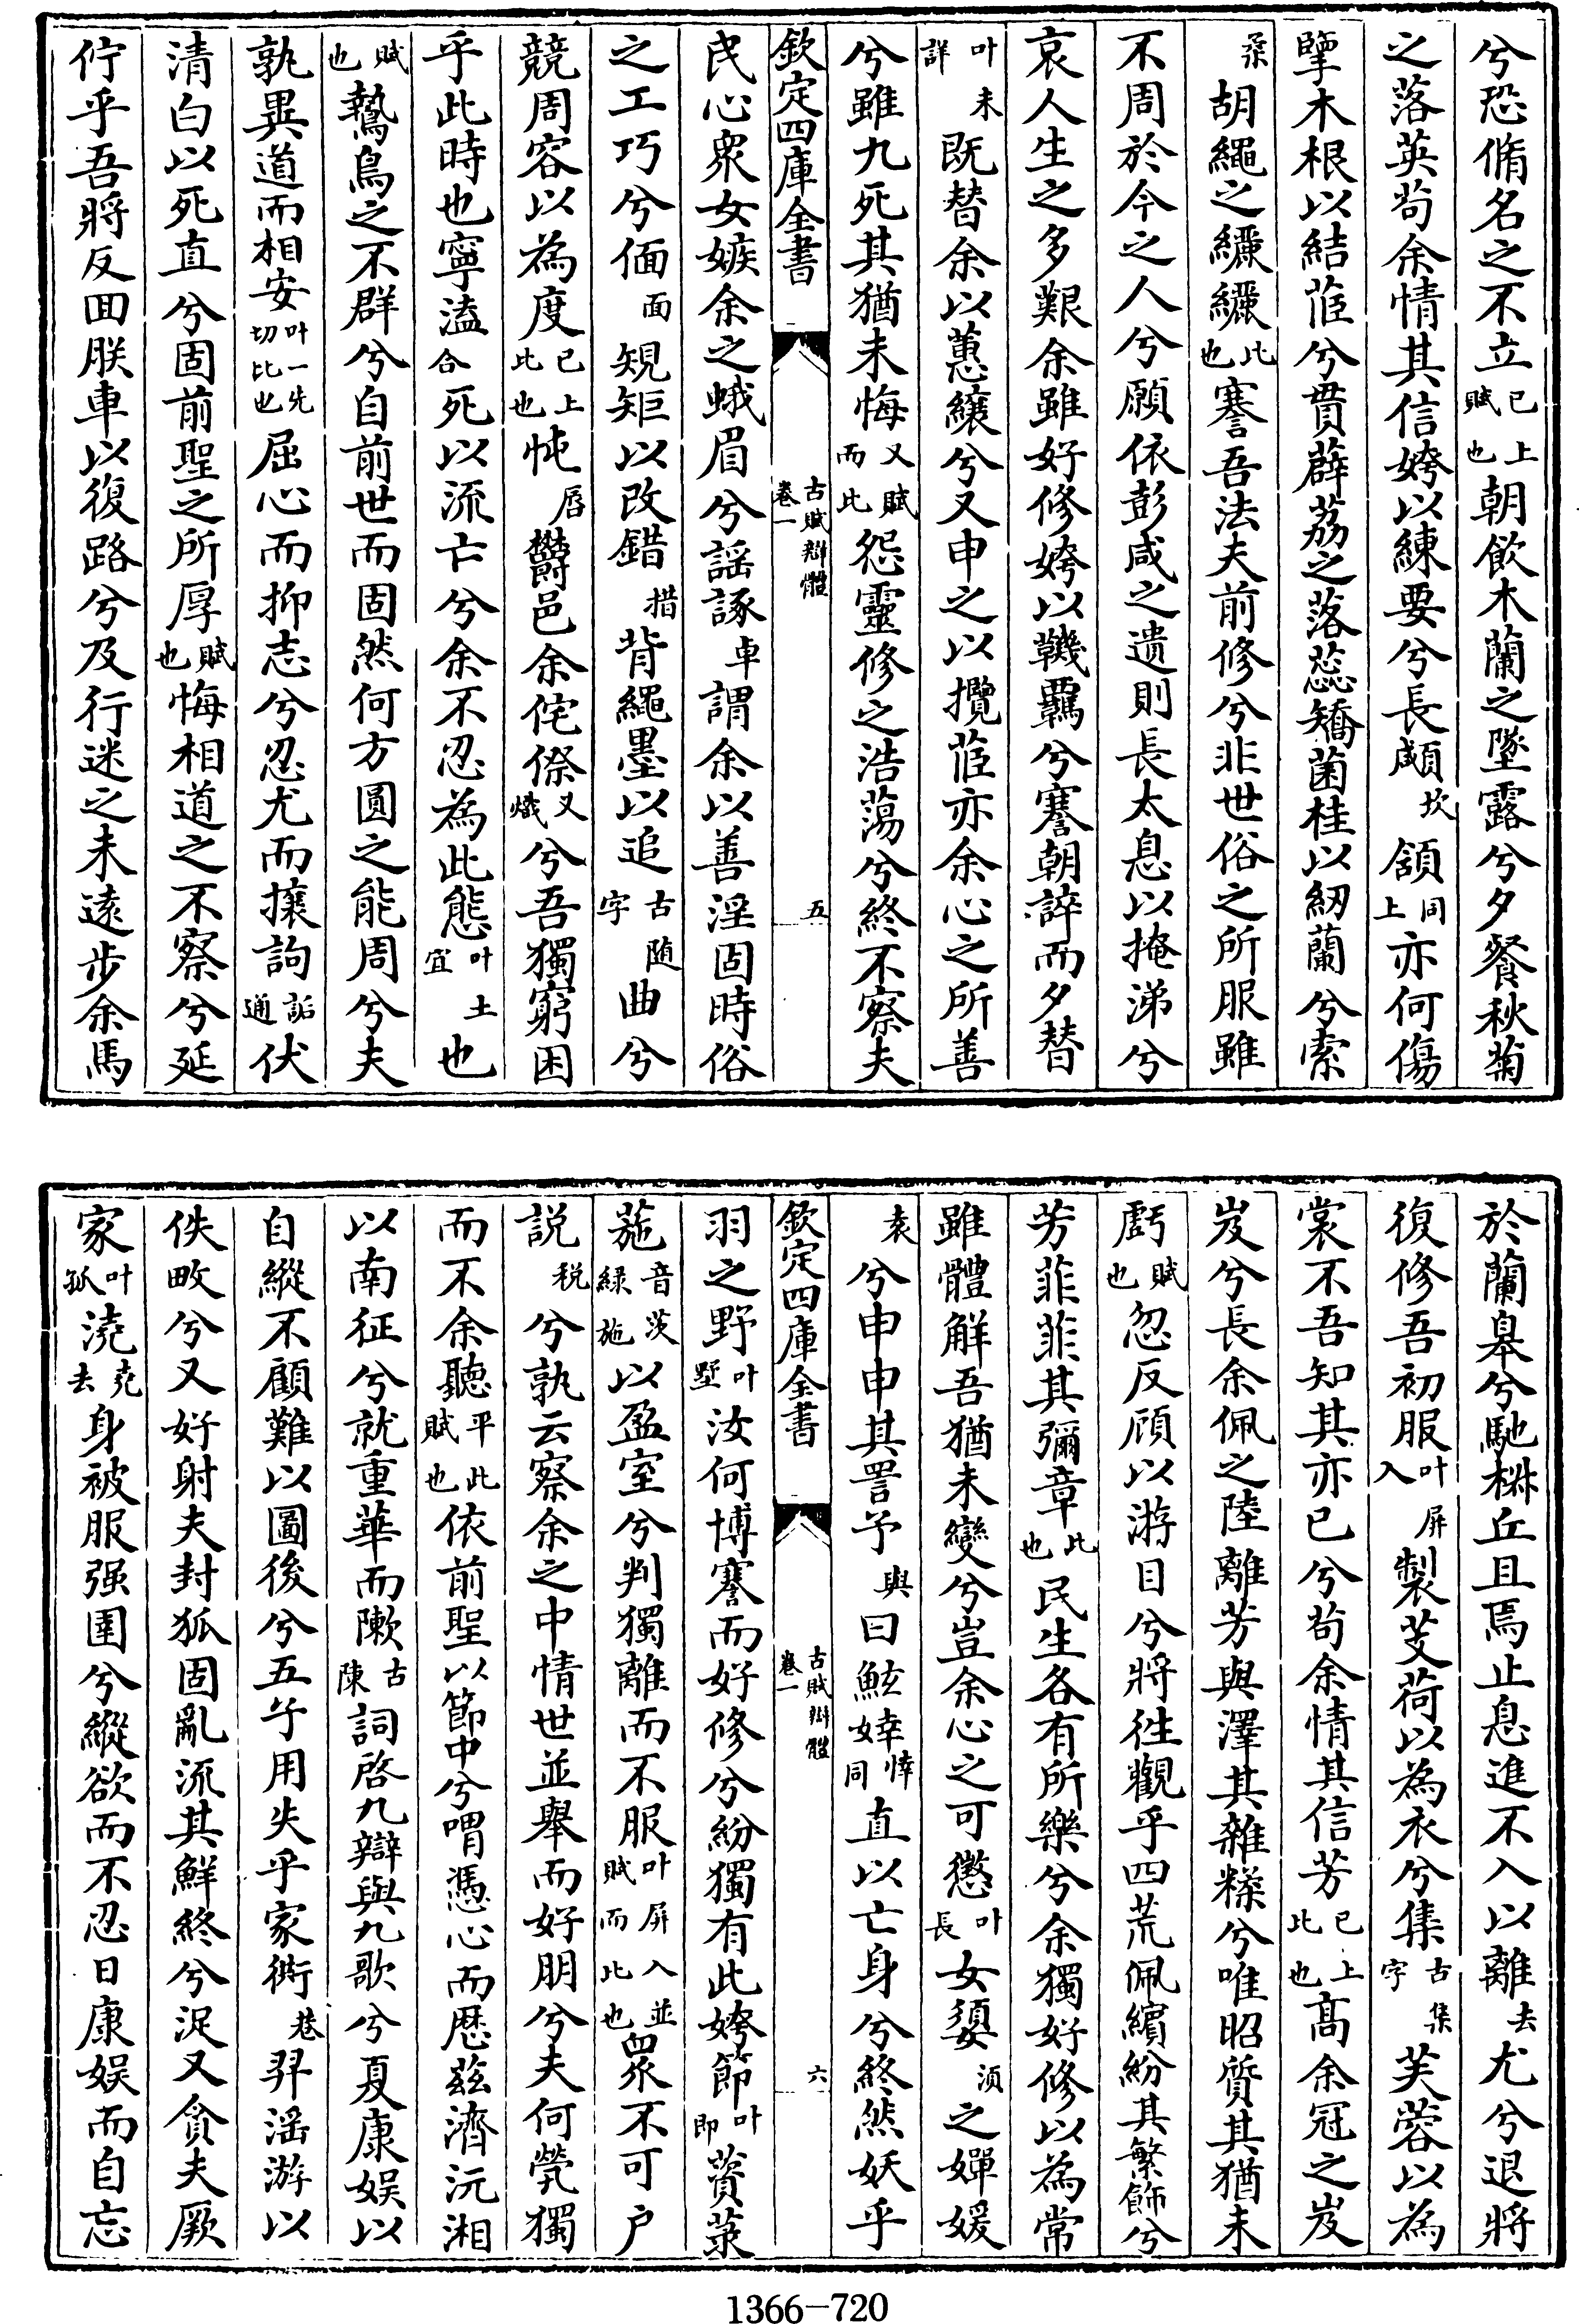 兮恐脩名之不立已上賦也朝飲木蘭之墜露兮夕餐秋菊
之落英茍余情其信姱以練要兮長顑坎頷同上亦何傷
擥木根以結茝兮貫薜荔之落蕊矯菌桂以紉蘭兮索
桒胡繩之纚纚此也謇吾法夫前修兮非世俗之所服雖
不周於今之人兮願依彭咸之遺則長太息以掩涕兮
哀人生之多艱余雖好修姱以鞿羈兮謇朝誶而夕替
叶未詳既替余以蕙纕兮又申之以攬茝亦余心之所善
兮雖九死其猶未悔又賦而比怨靈修之浩蕩兮終不察夫
欽定四庫全書 古賦辯體卷一 五
民心衆女嫉余之蛾眉兮謡諑卓謂余以善淫固時俗
之工巧兮偭面規矩以改錯措背繩墨以追古隨字曲兮
競周容以為度已上比也忳屑鬱邑余侘傺叉熾兮吾獨窮困
乎此時也寧溘合死以流亡兮余不忍為此態叶土宜也
賦也鷙鳥之不羣兮自前世而固然何方圓之能周兮夫
孰異道而相安叶一先切比也屈心而抑志兮忍尤而攘詢詬通伏
清白以死直兮固前聖之所厚賦也悔相道之不察兮延
佇乎吾將反囬朕車以復路兮及行迷之未遠步余馬
於蘭臯兮馳椒丘且焉止息進不入以離去尤兮退將
復修吾初服叶屏入製芰荷以為衣兮集古集字芙蓉以為
裳不吾知其亦已兮茍余情其信芳已上比也髙余冠之岌
岌兮長余佩之陸離芳與澤其雜糅兮唯昭質其猶未
虧賦也忽反顧以游目兮將徃觀乎四荒佩繽紛其繁飾兮
芳菲菲其彌章比也民生各有所樂兮余獨好修以為常
雖體解吾猶未變兮豈余心之可懲叶長女嬃須之嬋媛
袁兮申申其詈予與曰鮌婞悻同直以亡身兮終然妖乎
欽定四庫全書 古賦辯體卷一 六
羽之野叶墅汝何博謇而好修兮紛獨有此姱節叶即薋菉
葹音茨緑施以盈室兮判獨離而不服叶屏入並賦而比也衆不可户
説税兮孰云察余之中情世並舉而好朋兮夫何煢獨
而不余聽平此賦也依前聖以節中兮喟憑心而厯兹濟沅湘
以南征兮就重華而敶古陳詞啓九辯與九歌兮夏康娱以
自縱不顧難以圖後兮五子用失乎家衖巷羿滛游以
佚畋兮又好射夫封狐固亂流其鮮終兮浞又貪夫厥
家叶孤澆堯去身被服强圉兮縱欲而不忍日康娱而自忘
1366-720